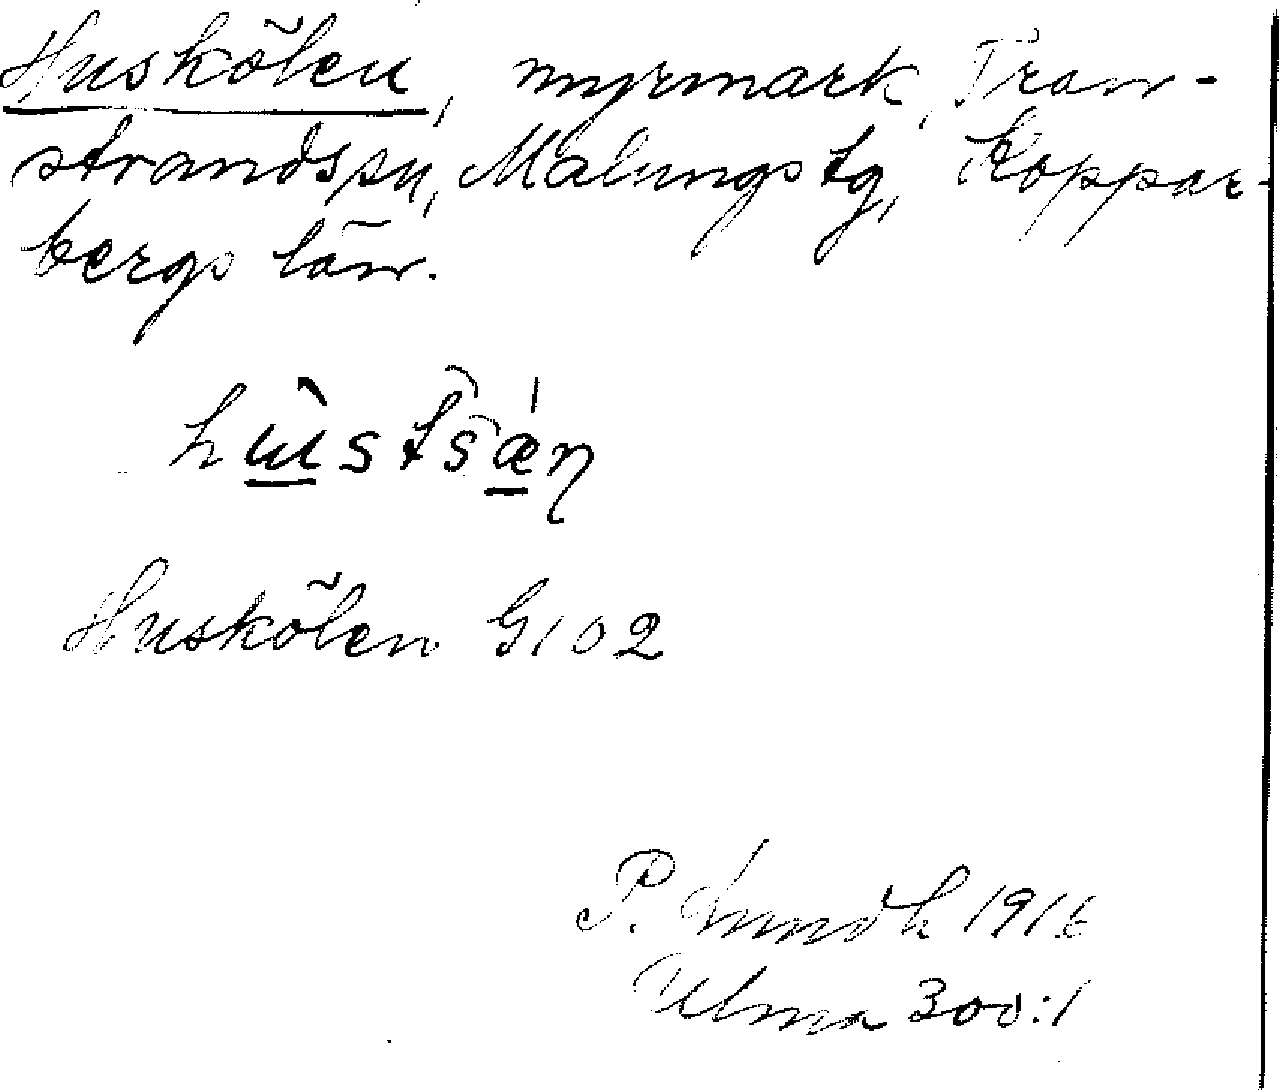 Huskölen, myrmark, Tran-
strands sn, Malungs tg, Koppar-
bergs län.
Huskölen G102
P. Lindh 1916
Ulma 300:1